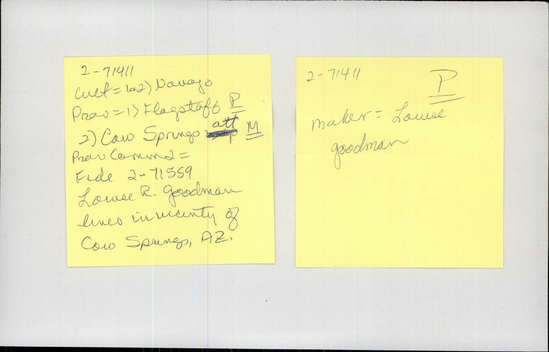 2-71411
Cult = 1&2) Navajo
Prov = 1) Flagstaff P
2) Cow Springs att M
Prov Comm 2 =
Fide 2-71559
Louise R. Goodman
lives in vicinity of
Cow Springs, AZ.
2-71411
P
maker = Louise
goodman